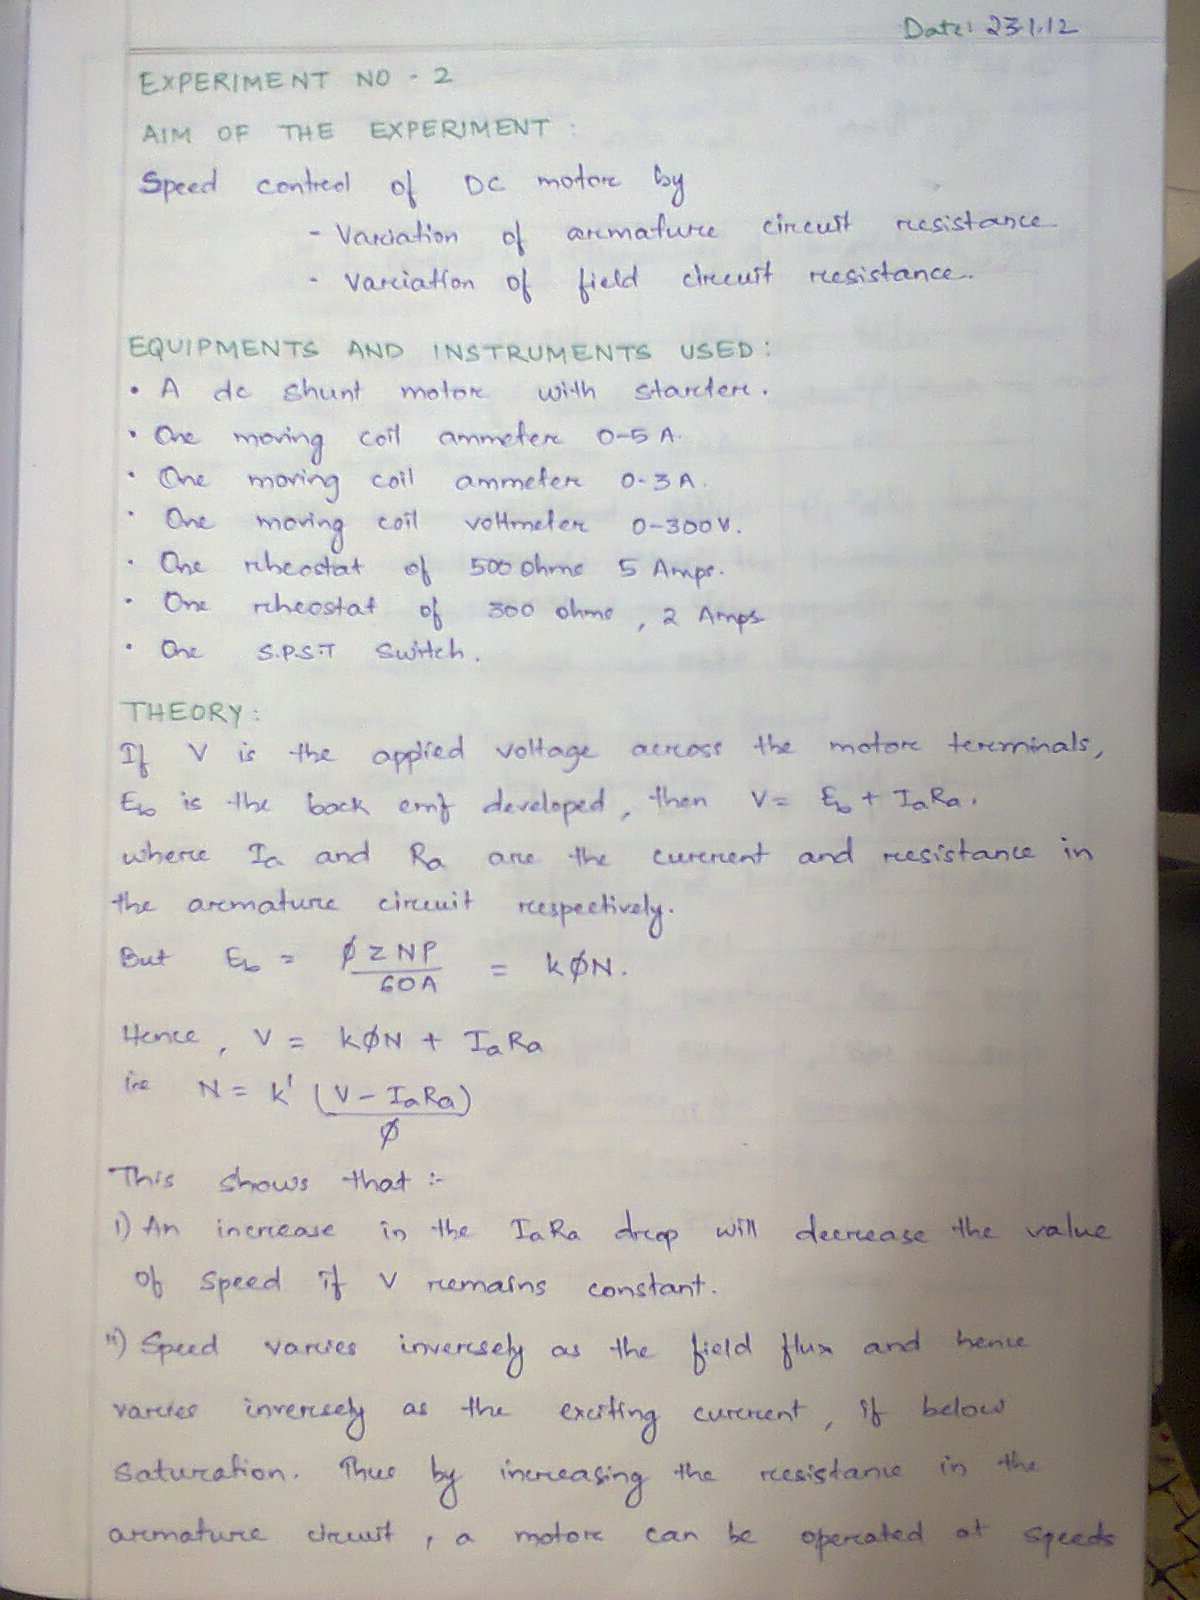 Date: 23.1.12
EXPERIMENT NO - 2
AIM OF THE EXPERIMENT :
Speed control of DC motor by
- Variation of armature circuit resistance
- Variation of field circuit resistance.
EQUIPMENTS AND INSTRUMENTS USED :
• A dc shunt motor with starter.
• One moving coil ammeter 0-5 A.
• One moving coil ammeter 0-3 A.
• One moving coil voltmeter 0-300 V.
• One rheostat of 500 ohms 5 Amps.
• One rheostat of 300 ohms, 2 Amps
• One S.P.S.T Switch.
THEORY :
If V is the applied voltage across the motor terminals,
Eb is the back emf developed, then V = Eb + IaRa,
where Ia and Ra are the current and resistance in
the armature circuit respectively.
But Eb = ØZNP/60A = kØN.
Hence, V = kØN + IaRa
ie N = k' (V - IaRa)/Ø
This shows that :-
i) An increase in the IaRa drop will decrease the value
of speed if V remains constant.
ii) Speed varies inversely as the field flux and hence
varies inversely as the exciting current, if below
saturation. Thus by increasing the resistance in the
armature circuit, a motor can be operated at speeds